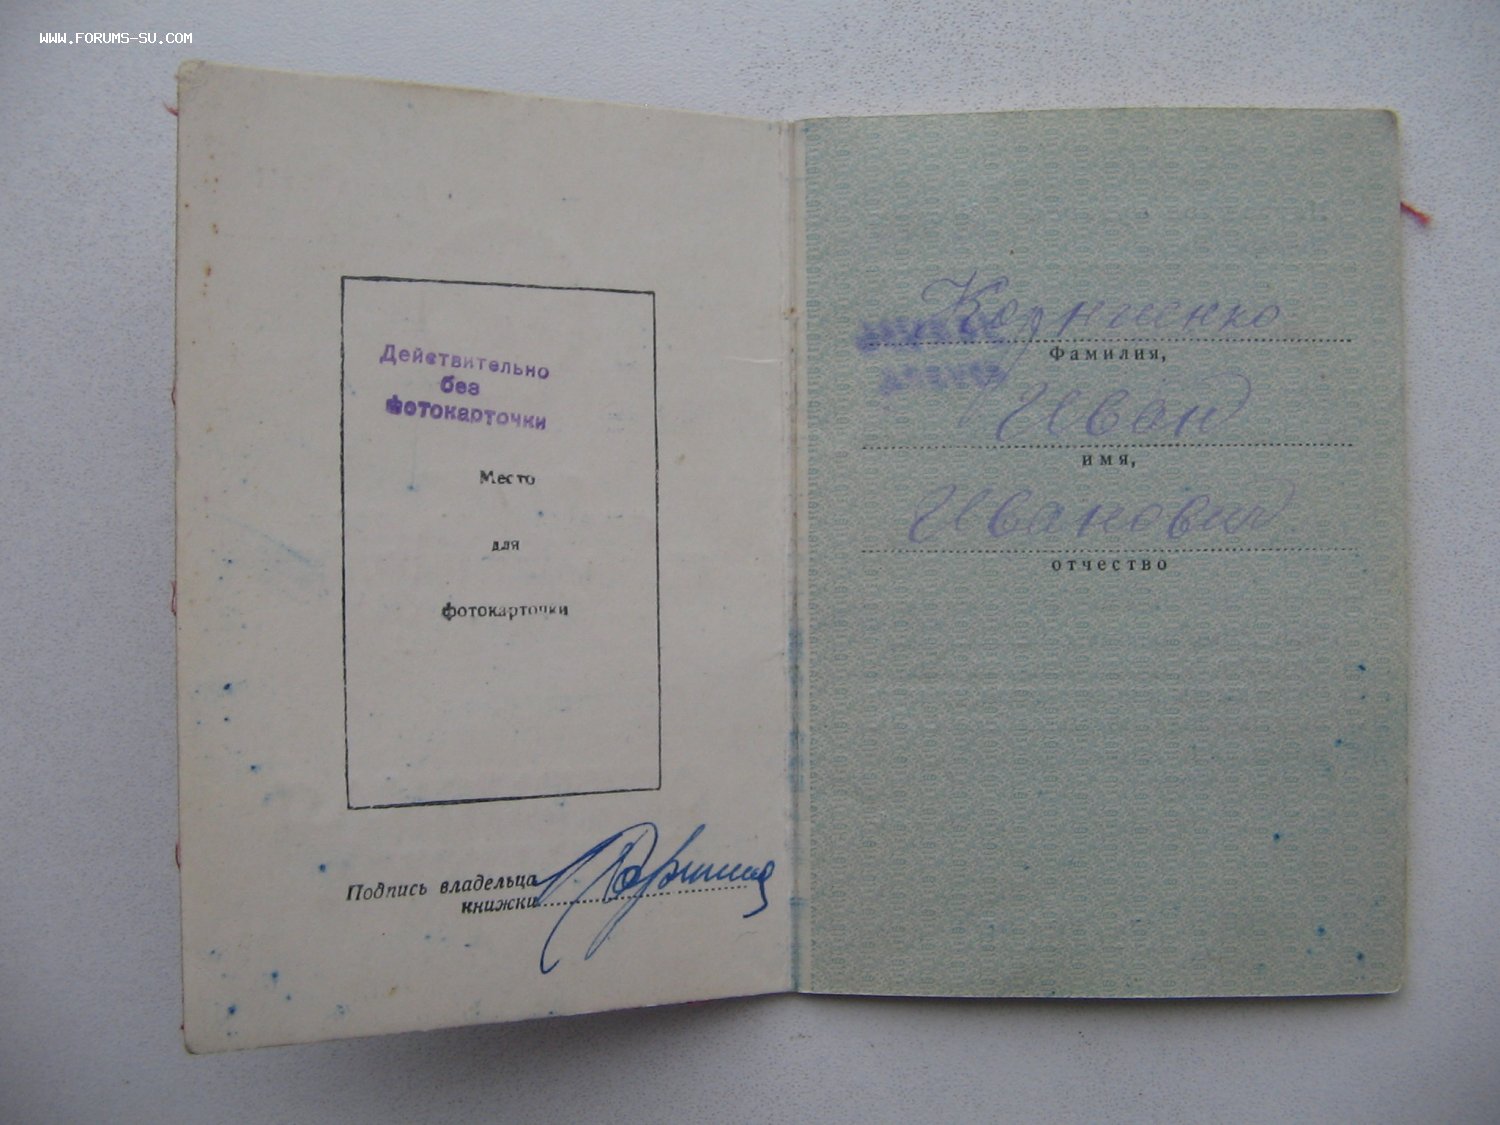 www.forums-su.com
Действительно
без
фотокарточки
Место
для
фотокарточки
Подпись владельца
книжки
Корниенко
Фамилия,
Иван
имя,
Иванович
отчество